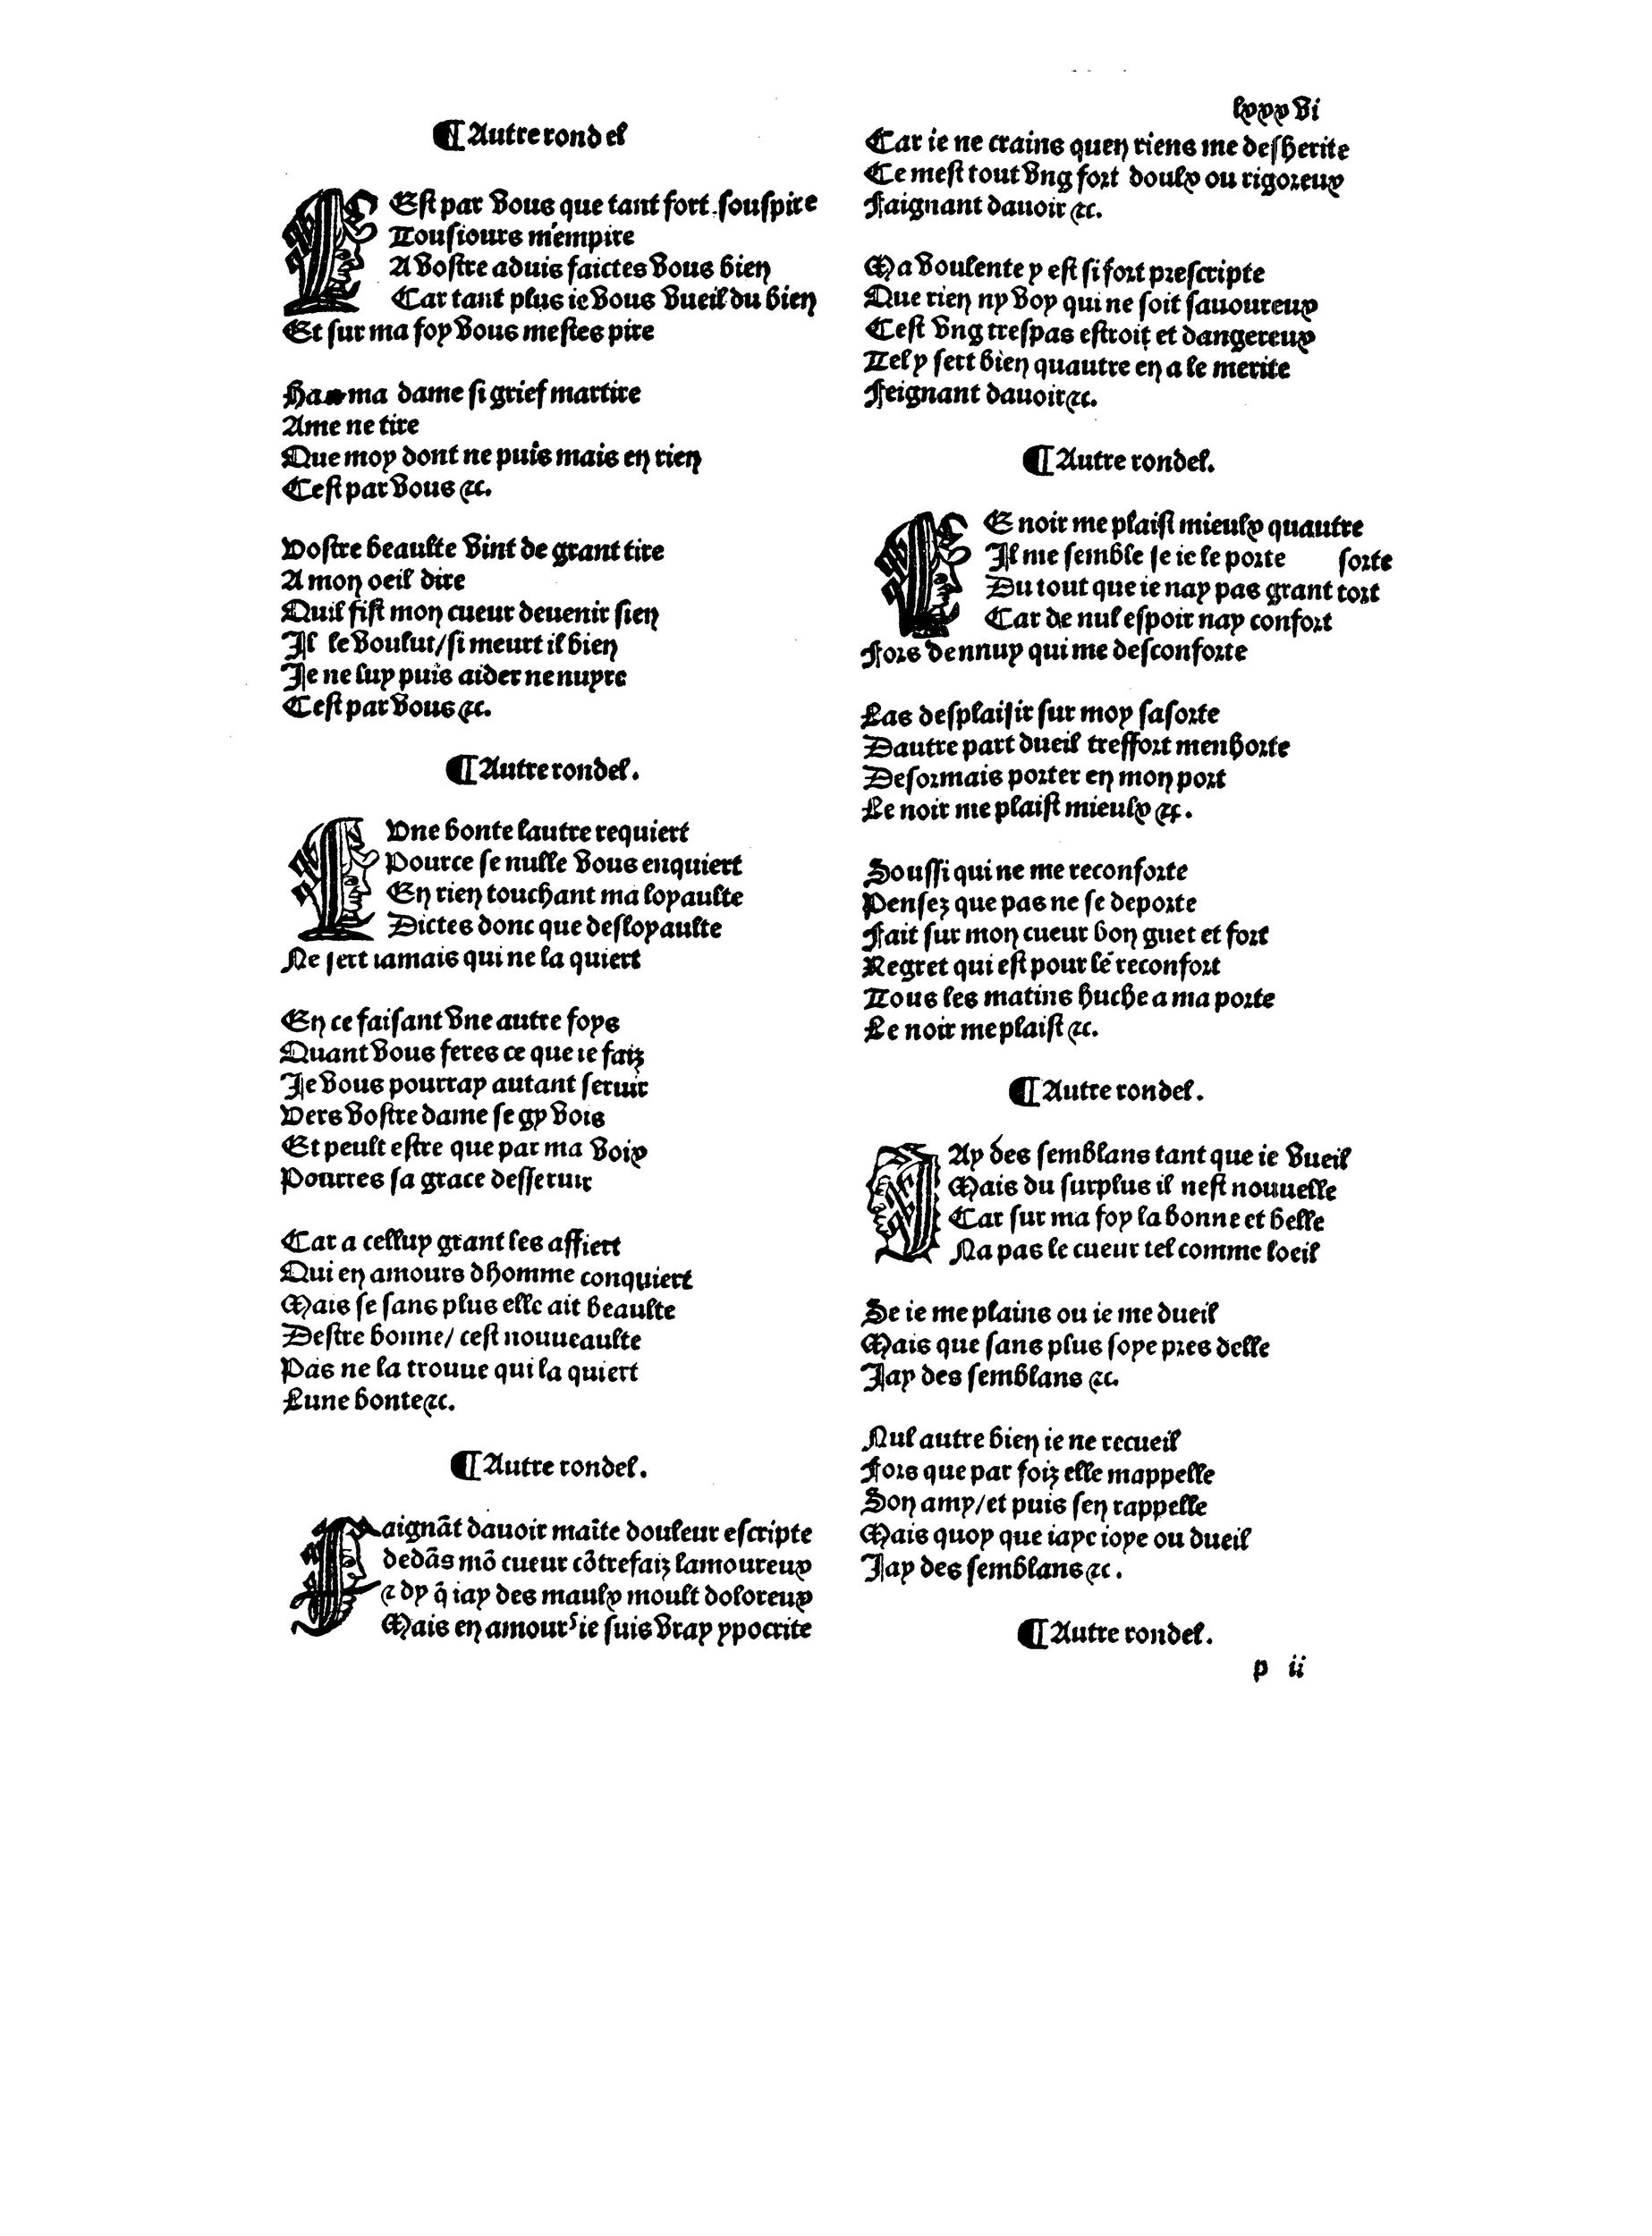 lxxxvi
¶ Autre rondel
CEst par vous que tant fort souspire
Tousiours mempire
A vostre aduis faictes vous bien
Car tant plus ie vous vueil du bien
Et sur ma foy vous mestes pire
Ha ma dame si grief martire
Ame ne tire
Que moy dont ne puis mais en rien
Cest par vous ⁊c.
Vostre beaulte vint de grant tire
A mon oeil dire
Quil fist mon cueur deuenir sien
Il le voulut/si meurt il bien
Je ne luy puis aider ne nuyre
Cest par vous ⁊c.
¶ Autre rondel.
LVne bonte lautre requiert
Pource se nulle vous enquiert
En rien touchant ma loyaulte
Dictes donc que desloyaulte
Ne sert iamais qui ne la quiert
En ce faisant vne autre foys
Quant vous feres ce que ie faiz
Je vous pourray autant seruir
Vers vostre dame se gy vois
Et peult estre que par ma voix
Pourres sa grace desseruir
Car a celluy grant les affiert
Qui en amours dhomme conquiert
Mais se sans plus elle ait beaulte
Destre bonne/ cest nouueaulte
Pas ne la trouue qui la quiert
Lune bonte ⁊c.
¶ Autre rondel.
Faignãt dauoir maĩte douleur escripte
dedãs mõ cueur cõtrefaiz lamoureux
⁊ dy q̃ iay des maulx moult doloreux
Mais en amours ie suis vray ypocrite
Car ie ne crains quen riens me desherite
Ce mest tout vng fort doulx ou rigoreux
Faignant dauoir ⁊c.
Ma voulente y est si fort prescripte
Que rien ny voy qui ne soit sauoureux
Cest vng trespas estroit et dangereux
Tel y sert bien quautre en a le merite
Feignant dauoir ⁊c.
¶ Autre rondel.
LE noir me plaist mieulx quautre
Il me semble se ie le porte sorte
Du tout que ie nay pas grant tort
Car de nul espoir nay confort
Fors dennuy qui me desconforte
Las desplaisir sur moy sasorte
Dautre part dueil tresfort menhorte
Desormais porter en mon port
Le noir me plaist mieulx ⁊c.
Soussi qui ne me reconforte
Pensez que pas ne se deporte
Fait sur mon cueur bon guet et fort
Regret qui est pour le reconfort
Tous les matins huche a ma porte
Le noir me plaist ⁊c.
¶ Autre rondel.
JAy des semblans tant que ie vueil
Mais du surplus il nest nouuelle
Car sur ma foy la bonne et belle
Na pas le cueur tel comme loeil
Se ie me plains ou ie me dueil
Mais que sans plus soye pres delle
Jay des semblans ⁊c.
Nul autre bien ie ne recueil
Fors que par foiz elle mappelle
Son amy/et puis sen rappelle
Mais quoy que iaye ioye ou dueil
Jay des semblans ⁊c.
¶ Autre rondel.
p ii